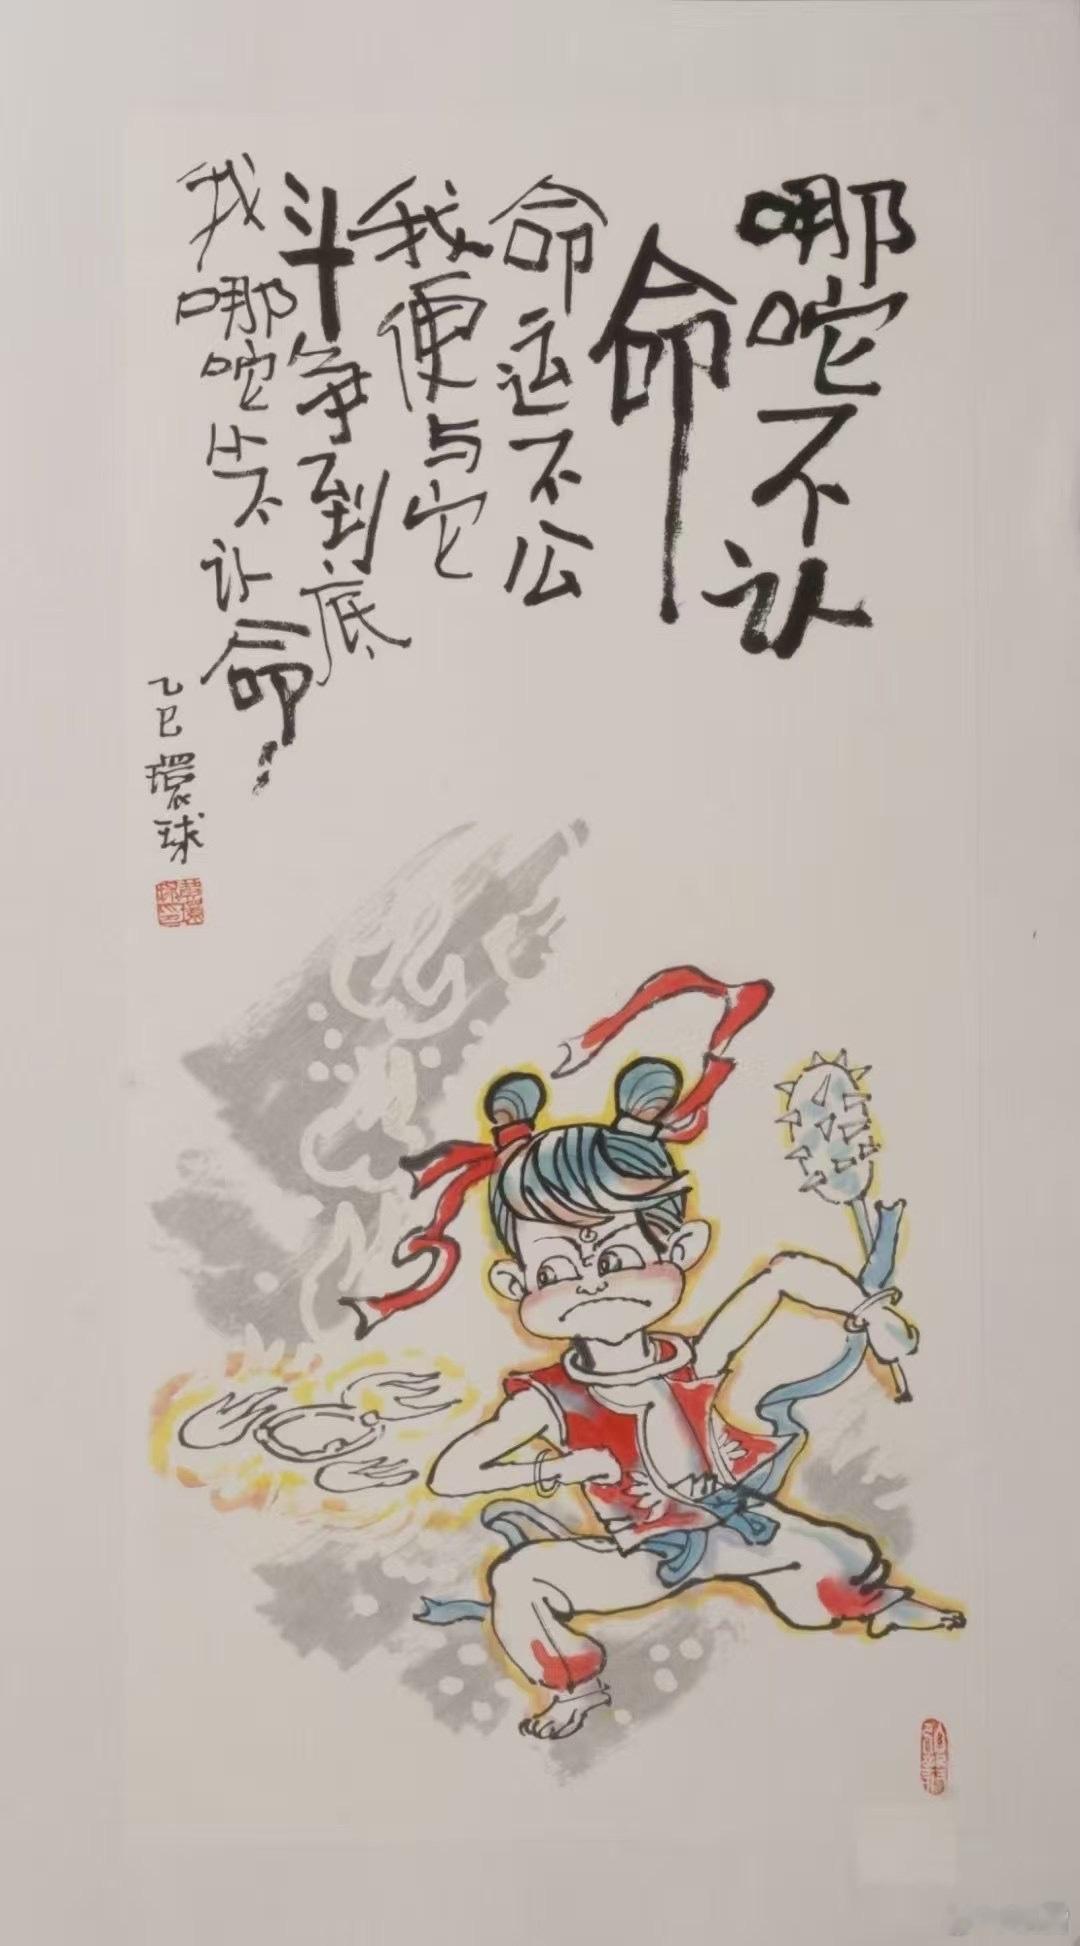 哪咜不认
命
命运不公
我便与它
斗争到底
我哪咜不认命!
乙巳 環球